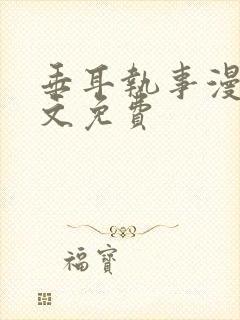 垂耳執事漫
文免費
福寶